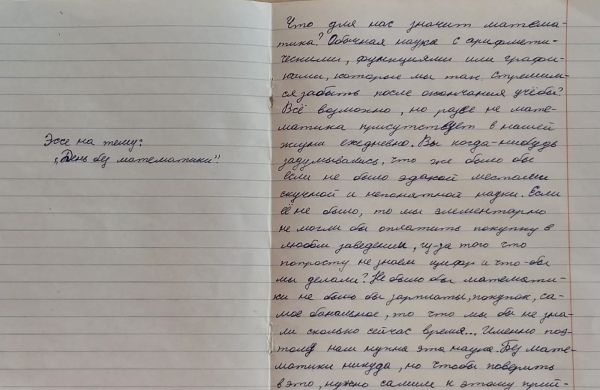 Эссе на тему:
„День без математики"
Что для нас значит матема-
тика? Обычная наука с арифмети-
ческими, функциями или графи-
ками, которые мы так стремим-
ся забыть после окончания учёбы?
Всё возможно, но разве не мате-
матика присутствует в нашей
жизни ежедневно. Вы когда-нибудь
задумывались, что же было бы
если не было эдакой местами
скучной и непонятной науки. Если
её не было, то мы элементарно
не могли бы оплатить покупку в
любом заведении, из-за того что
попросту не знаем цифр и что-бы
мы делали? Не было бы математи-
ки не было бы зарплаты, покупок, са-
мое банальное, то что мы бы не зна-
ли сколько сейчас время... Именно поэ-
тому нам нужна эта наука. Без мате-
матики никуда, но чтобы поверить
в это, нужно самим к этому прий-